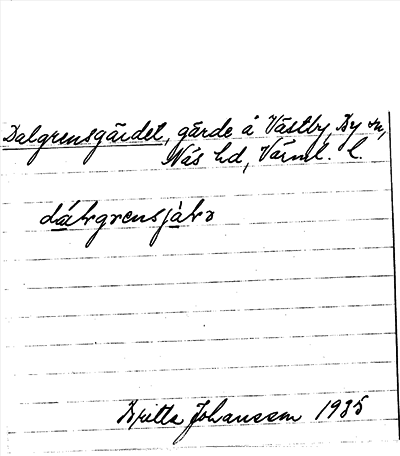 Dalgrensgärdet, gärde å Västby, By sn,
Näs hd, Värml. l.
Britta Johansson 1935